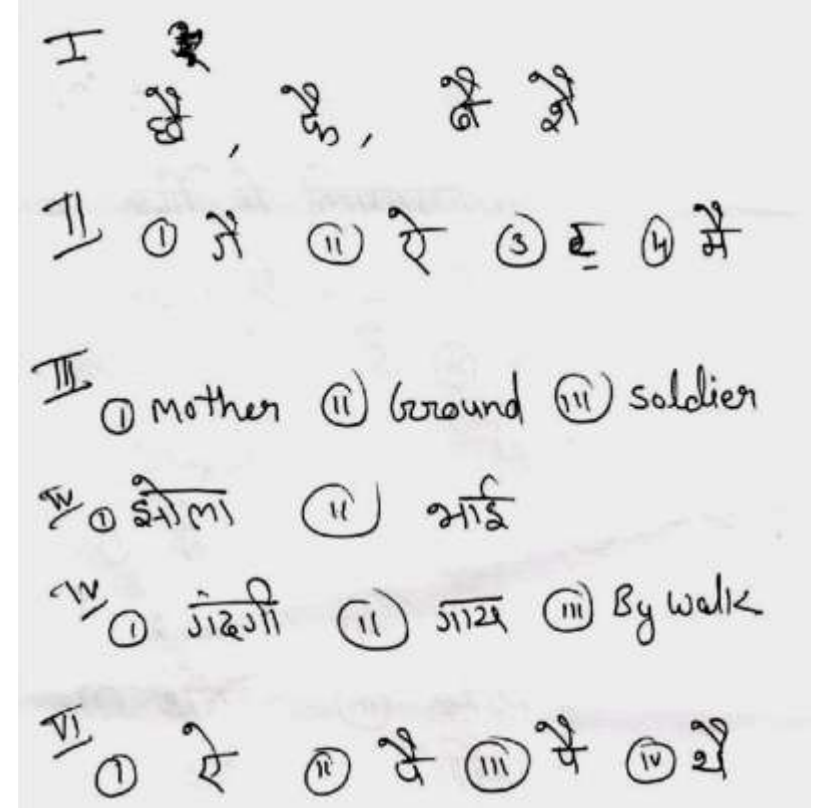 I
छै, फै, ठै शै
II ① गै ⑪ ऐ ③ ह ④ मै
III ① Mother ⑪ Ground ⑪⑪ Soldier
IV ① झोला ⑪ भाई
IV ① गंदगी ⑪ गाय ⑪⑪ By walk
VI ① ऐ ⑪ पै ⑪⑪ पै iv थै